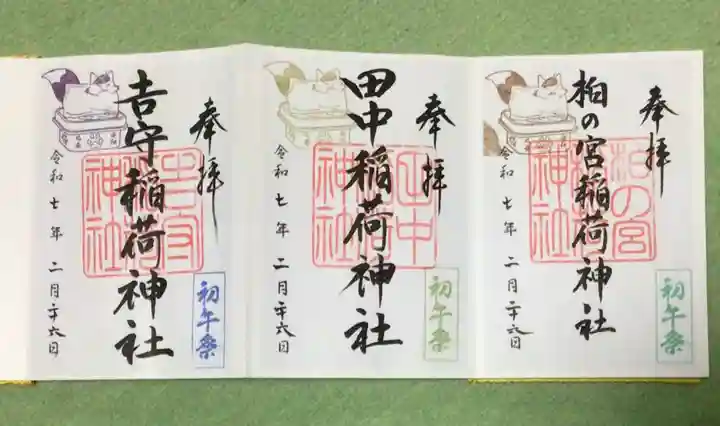 奉拝
柏の宮稲荷神社
柏の宮稲荷神社
令和七年二月二十六日
初午祭
奉拝
田中稲荷神社
田中稲荷神社
令和七年二月二十六日
初午祭
奉拝
吉守稲荷神社
吉守稲荷神社
令和七年二月二十六日
初午祭